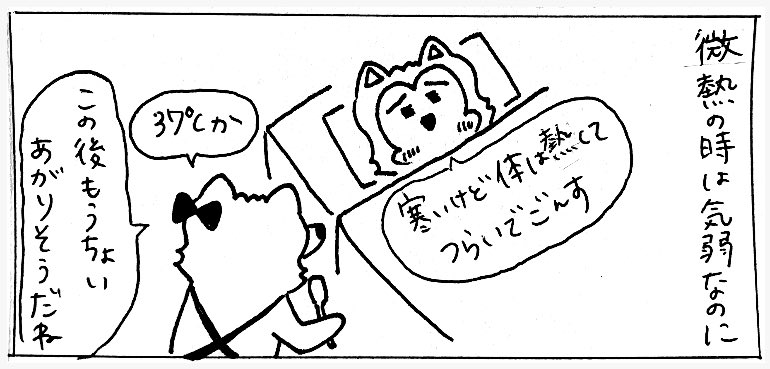 微熱の時は気弱なのに
寒いけど体は熱くて
つらいでごんす
37℃か
この後もうちょい
あがりそうだね